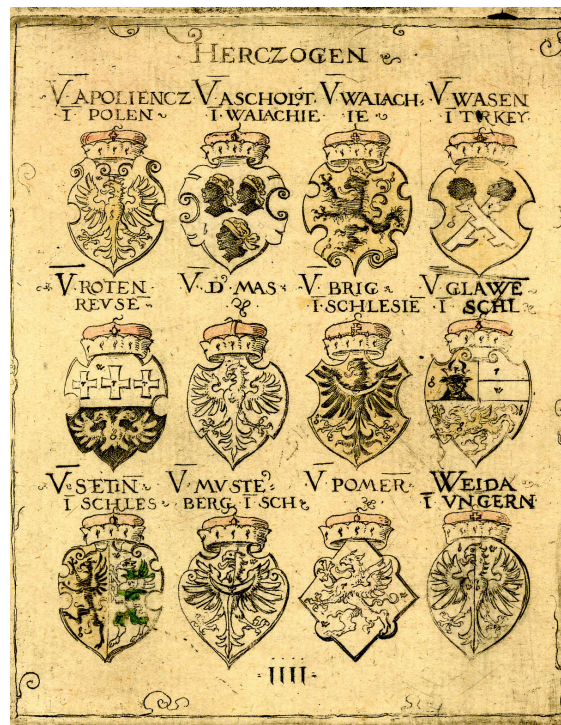 HERCZOGEN
V·APOLIENCZ
I POLEN
V̄ASCHOLꝮT
I·WAIACHIE
V·WAIACH
IE
V̄·WASEN
I TVRKEY
V̄·ROTEN
REVSE
V̄·D·MAS
V̄·BRIG
I·SCHLESIĒ
V̄·GLAWE
I SCHL
V̄·SETIN̄
I SCHLES
V̄·MVSTE
BERG I SCH
V̄·POMER̄
WEIDA
Ī VNGERN
·IIII·